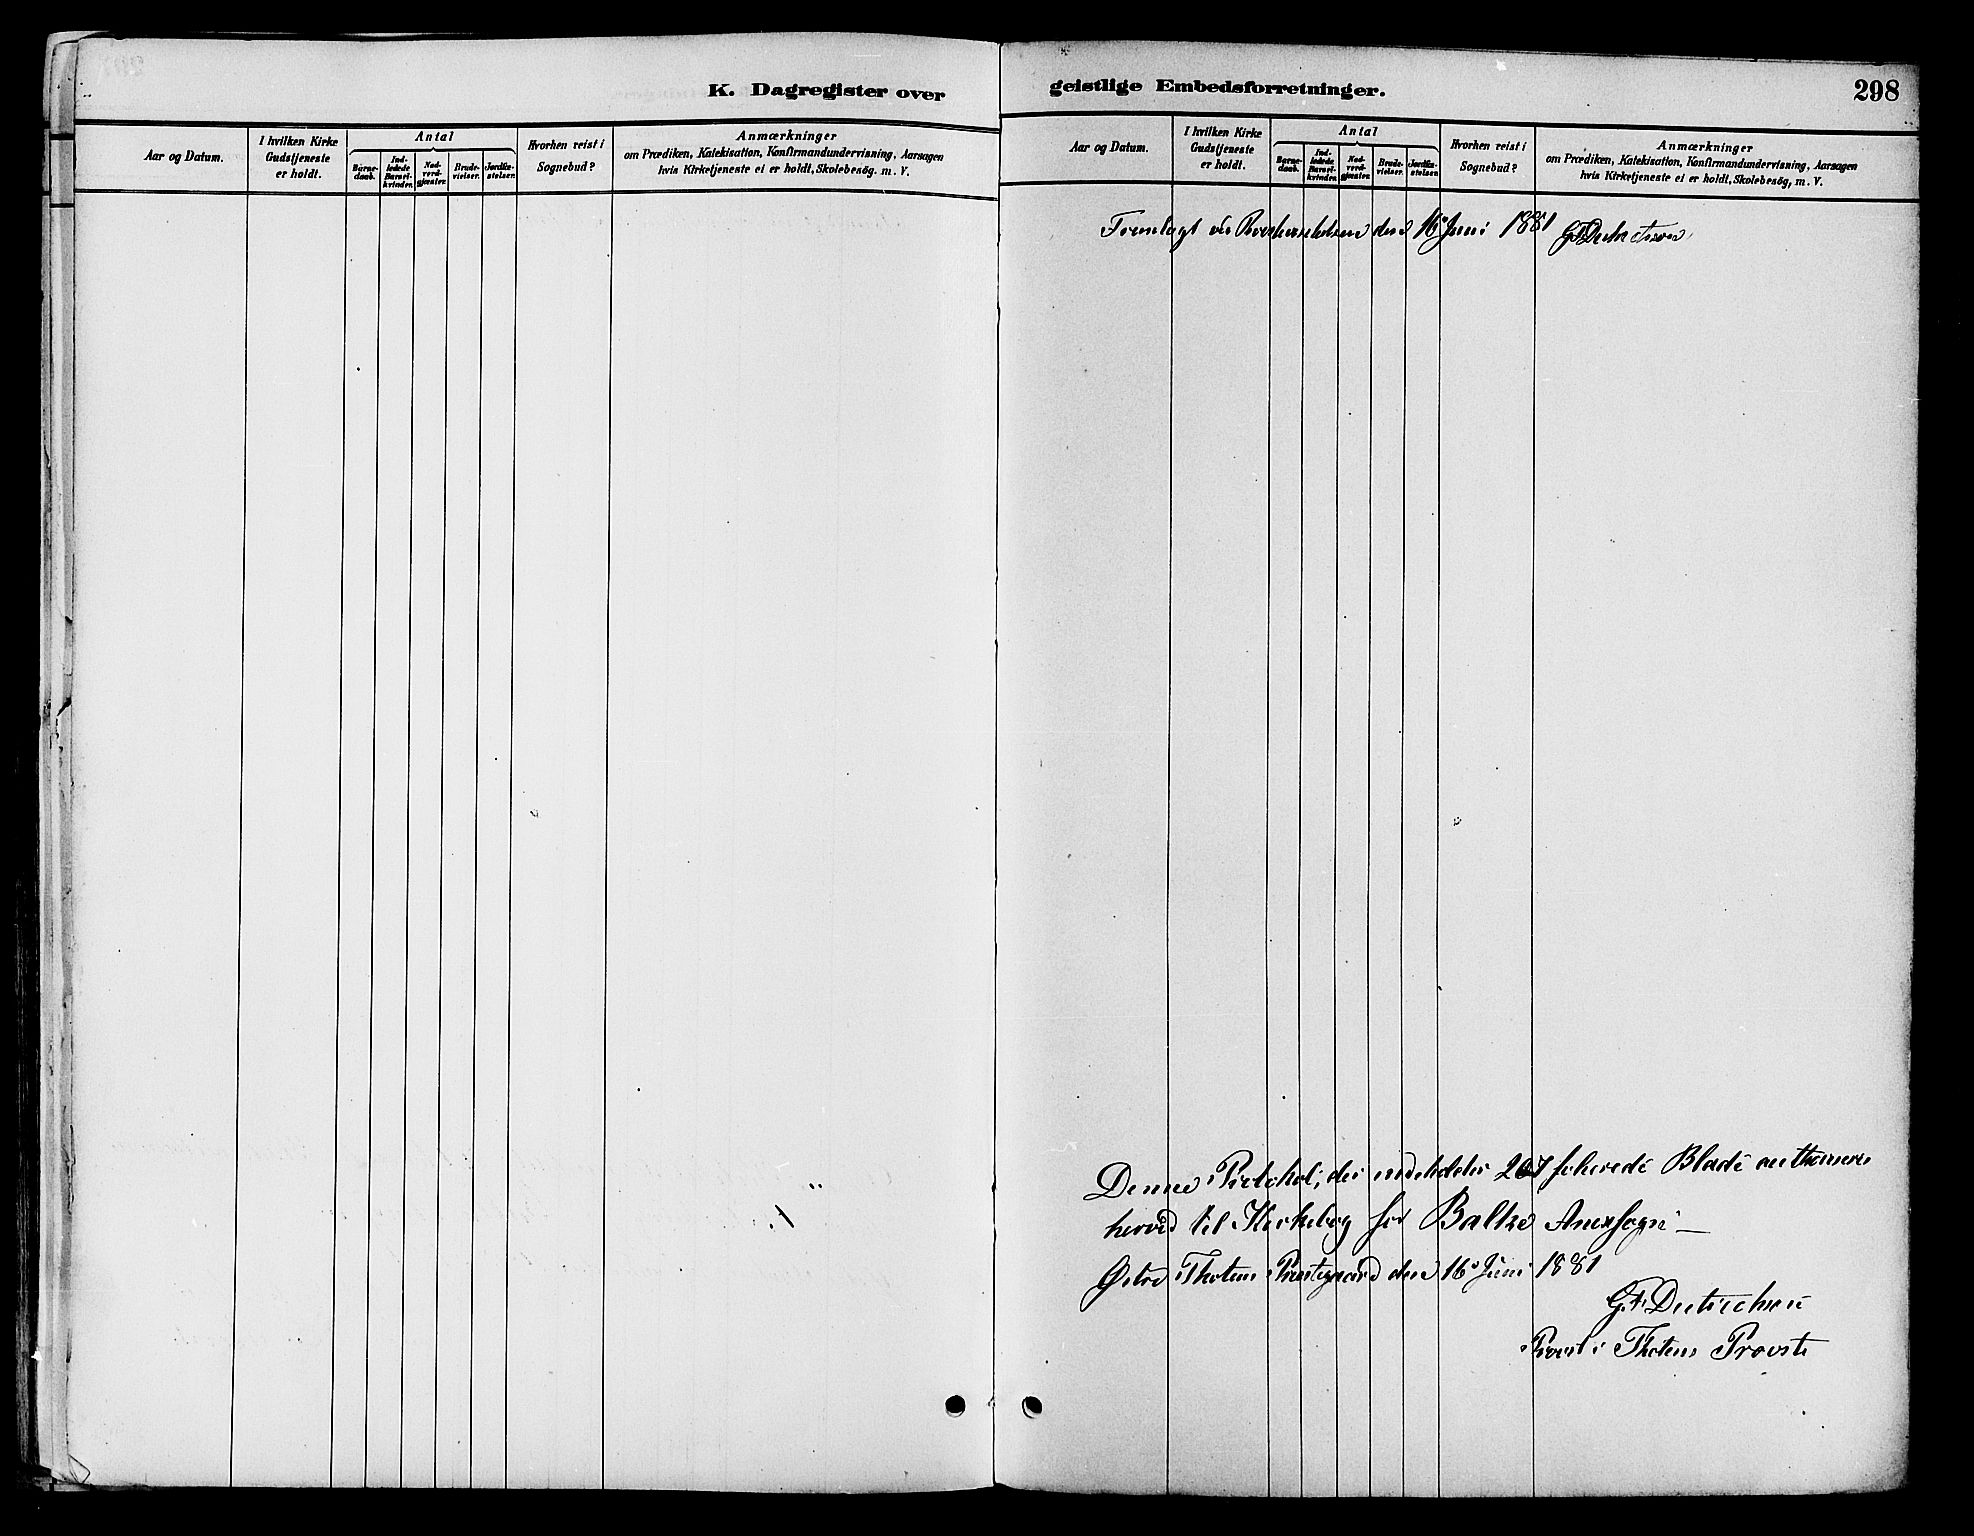 K. Dagregister over
Aar og Datum.
I hvilken Kirke
Gudstjeneste
er holdt.
Antal
Barne-
daab.
Ind-
ledede
Barsel-
kvinder.
Nad-
verd-
gjæster.
Brude-
vielser.
Jordfæ-
stelser.
Hvorhen reist i
Sognebud?
Anmærkninger
om Prædiken, Katekisation, Konfirmandundervisning, Aarsagen
hvis Kirketjeneste ei er holdt, Skolebesög. m. V.
geistlige Embedsforretninger.
298
Aar og Datum.
I hvilken Kirke
Gudstjeneste
er holdt.
Antal
Barne-
daab.
Ind-
ledede
Barsel-
kvinder.
Nad-
verd-
gjæster.
Brude-
vielser.
Jordfæ-
stelser.
Hvorhen reist i
Sognebud?
Anmærkninger
om Prædiken, Katekisation, Konfirmandundervisning, Aarsagen
hvis Kirketjeneste ei er holdt, Skolebesög, m. V.
Fremlagt den 16 Juni 1881
Denne Protokol, der indeholder folierede Blade
herved til Kirkebog for Balke Anexsogn
Østre Thotens Præstegaard den 16 Juni 1881
G. F. Dietrichson
Provst i Thotens Provsti